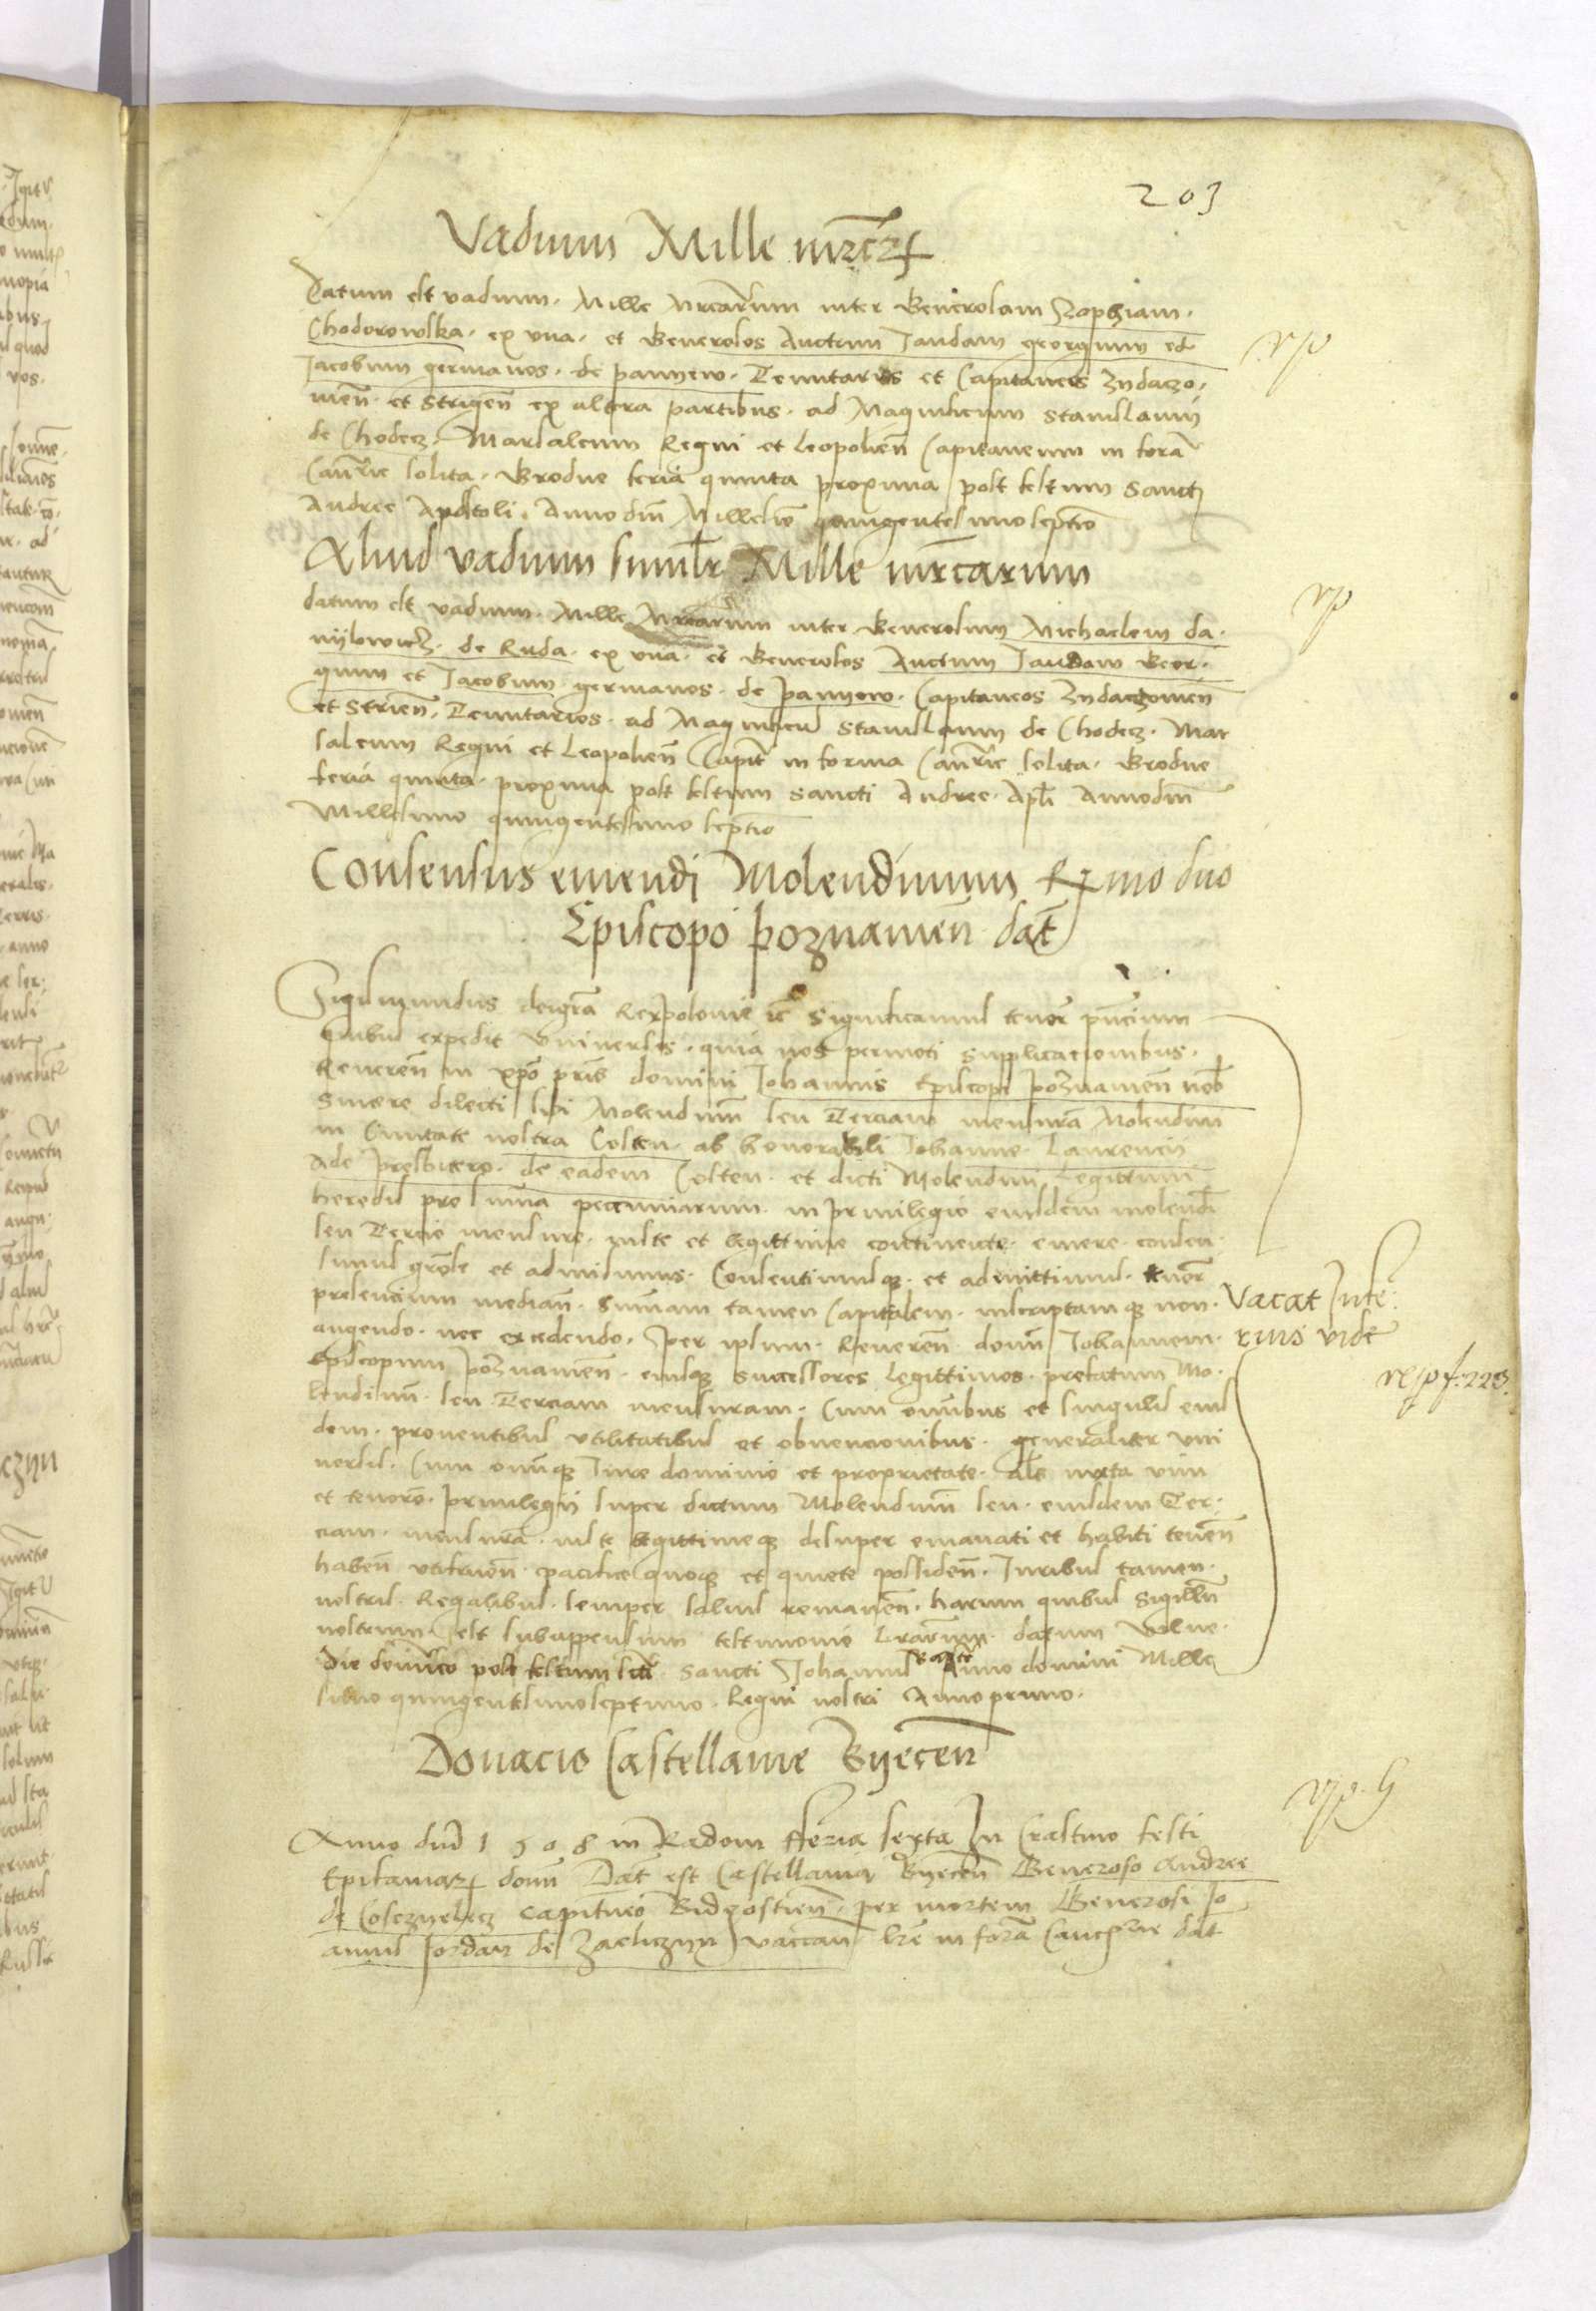 203
Vadium Mille mrcarꝝ
Datum est vadium. Mille Mrcarum inter Generosam Zophiam.
Chodorowska. ex vna. et Generosos Auctum Jandam georgium ed
Jacobum germanos. de pannyew. Tenutarios et Capitaneos Zydaczo.
vień. et Strigeń ex altera partibus. ad Magnificum Stanislaum
de Chodecz. Marsalcum Regni et leopolień Capitaneum in forā
Cancrie solita. Grodne feria quinta proxima post festum Sancti
Andree Apostoli. Anno dni Millesio quingentesimoseptio
Aliud vadium similr Mille mrcarum
datum est vadium. Mille Mrcarum inter Generosum Michaelem da.
nÿlowicz. de Ruda. ex vna. et Generosos Auctum Jandam Geor.
gium et Jacobum. germanos. de pannyew. Capitaneos Zydaczowień
et Strień. Tenutarios. ad Magnificū Stanislaum de Chodecz. Mar
salcum Regni et leopolień Capit in forma Cancrie solita. Grodne
feria quinta. proxima post festum Sancti Andree. Apli Annodni
Millesimo quingentesimo septio
Consensus emendi Molendinum Rmo dno
Episcopo poznanień dat
Sigismundus deigra Rexpolonie ic Significamus tenore pntium
quibus expedit vniuersis. quia nos permoti supplicationibus.
Reuereń in xpo pris domini Johannis Episcopi poznanień nob
sincere dilecti sibi Molendinū seu Terciam mensurā Molendini
in Ciuitate nostra Costen. ab honorabili Johanne. Laurencii
Ade presbitero. de eadem Costen. et dicti Molendini legittimi
heredis pro summa pecuniarum. in priuilegio eiusdem molendi
seu Tercie mensure. iuste et legittime continente. emere. consen.
simus grose et admisimus. Consentimusqꝫ. et admittimus. tenore
presencium median. Summam tamen Capitalem. inscriptamqꝫ non.
augendo. nec excedendo. per ipsum. Reuereń domn Johannem.
Episcopum poznanień. eiusqꝫ successores legittimos. prefatum Mo.
lendinū. seu Terciam mensuram. Cum omnibus et singulis eius
dem. prouentibus vtilitatibus et obuencionibus. generaliter vni
uersis. Cum omniqꝫ Jure dominio et proprietate. als iuxta vim
et tenorē. priuilegij super dictum Molendinū seu. eiusdem Ter.
ciam. mensurā. iuste legittimeqꝫ desuper emanati et habiti teneń
habeń vtifrueń. pacifice quoqꝫ et quiete possideń. Juribus tamen.
nostris. Regalibus. semper saluis remaneń. harum quibus Sigillū
nostrum. est subappensum testimonio lrarum. datum Wilne.
die domico post festum scti Sancti Johannis bapte Anno domini Mille
simo quingentesimoseptimo. Regni nostri Annoprimo.
Vacat Infe.
rius vide
resp f. 223.
Donacio Castellanie Byeceń
Anno dni 1508 in Radom fferia sexta In Crastino festi
Epifaniarꝝ domi Dat est Castellania Byeceń Generoso Andree
de Cosczyelecz capitneo Bidgostień. per mortem Generosi Jo
annis Jordan de Zacliczyn vaccań lre in forā Cancrie dat